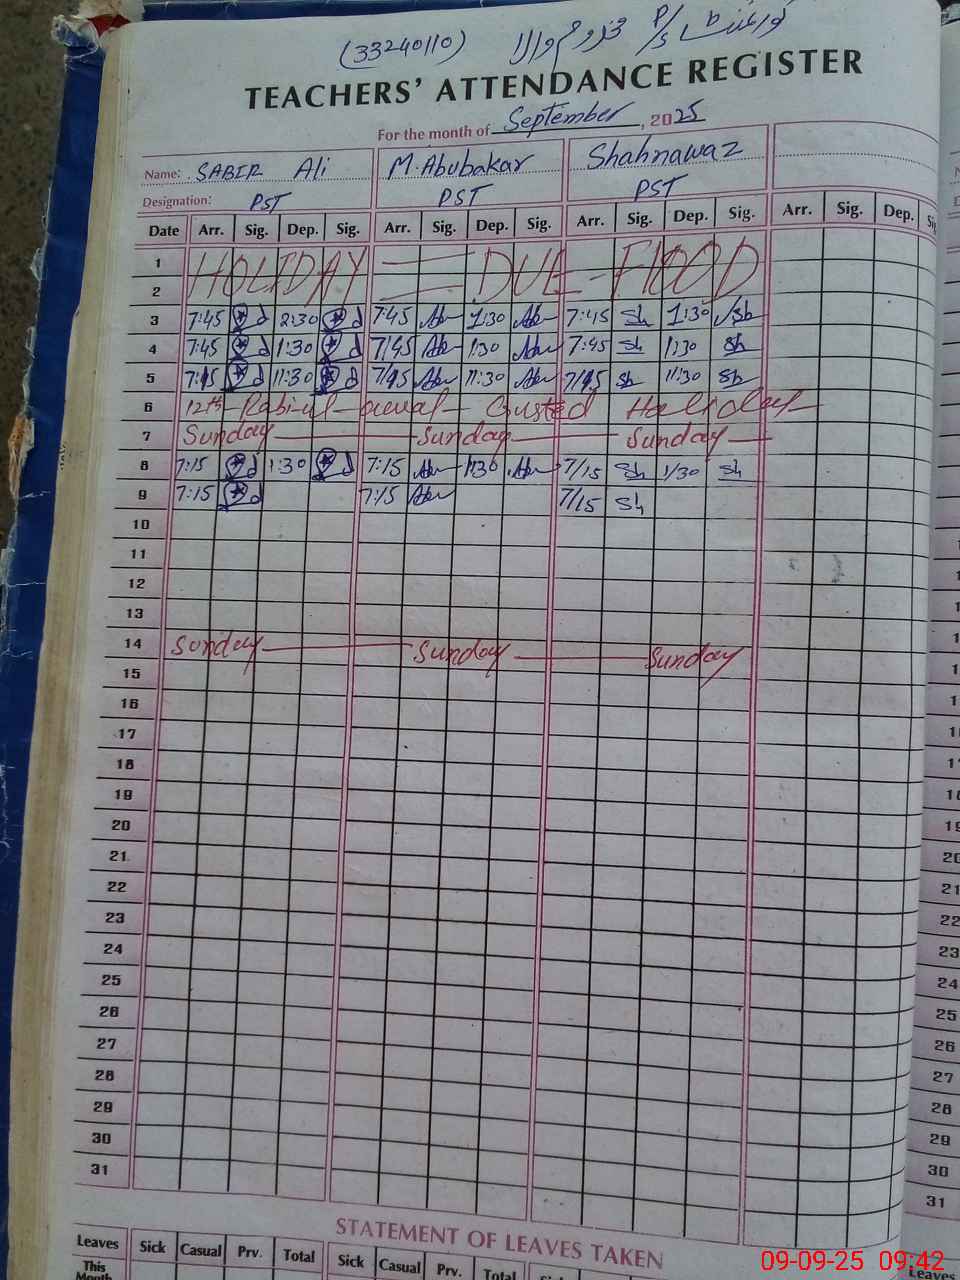 (33240110) گورنمنٹ P/S مخدوم والا
TEACHERS' ATTENDANCE REGISTER
For the month of September, 2025
Name: SABIR Ali M. Abubakar Shahnawaz
Designation: PST PST PST
Date Arr. Sig. Dep. Sig. Arr. Sig. Dep. Sig. Arr. Sig. Dep. Sig. Arr. Sig. Dep.
1 HOLIDAY = DUE - FlOOD
2
3 7:45 2:30 7:45 Abu 1:30 Abu 7:45 Sh 1:30 Sh
4 7:45 1:30 7:45 Abu 1:30 Abu 7:45 Sh 1:30 Sh
5 7:45 11:30 7:45 Abu 11:30 Abu 7:45 Sh 11:30 Sh
6 12th - Rabi-ul - Holiday
7 Sunday Sunday Sunday
8 7:15 1:30 7:15 Abu 1:30 Abu 7/15 Sh 1/30 Sh
9 7:15 7:15 Abu 7/15 Sh
10
11
12
13
14 Sunday Sunday Sunday
15
16
17
18
19
20
21
22
23
24
25
26
27
28
29
30
31
STATEMENT OF LEAVES TAKEN
Leaves Sick Casual Prv. Total Sick Casual Prv. Total
This Month
Leaves
09-09-25 09:42